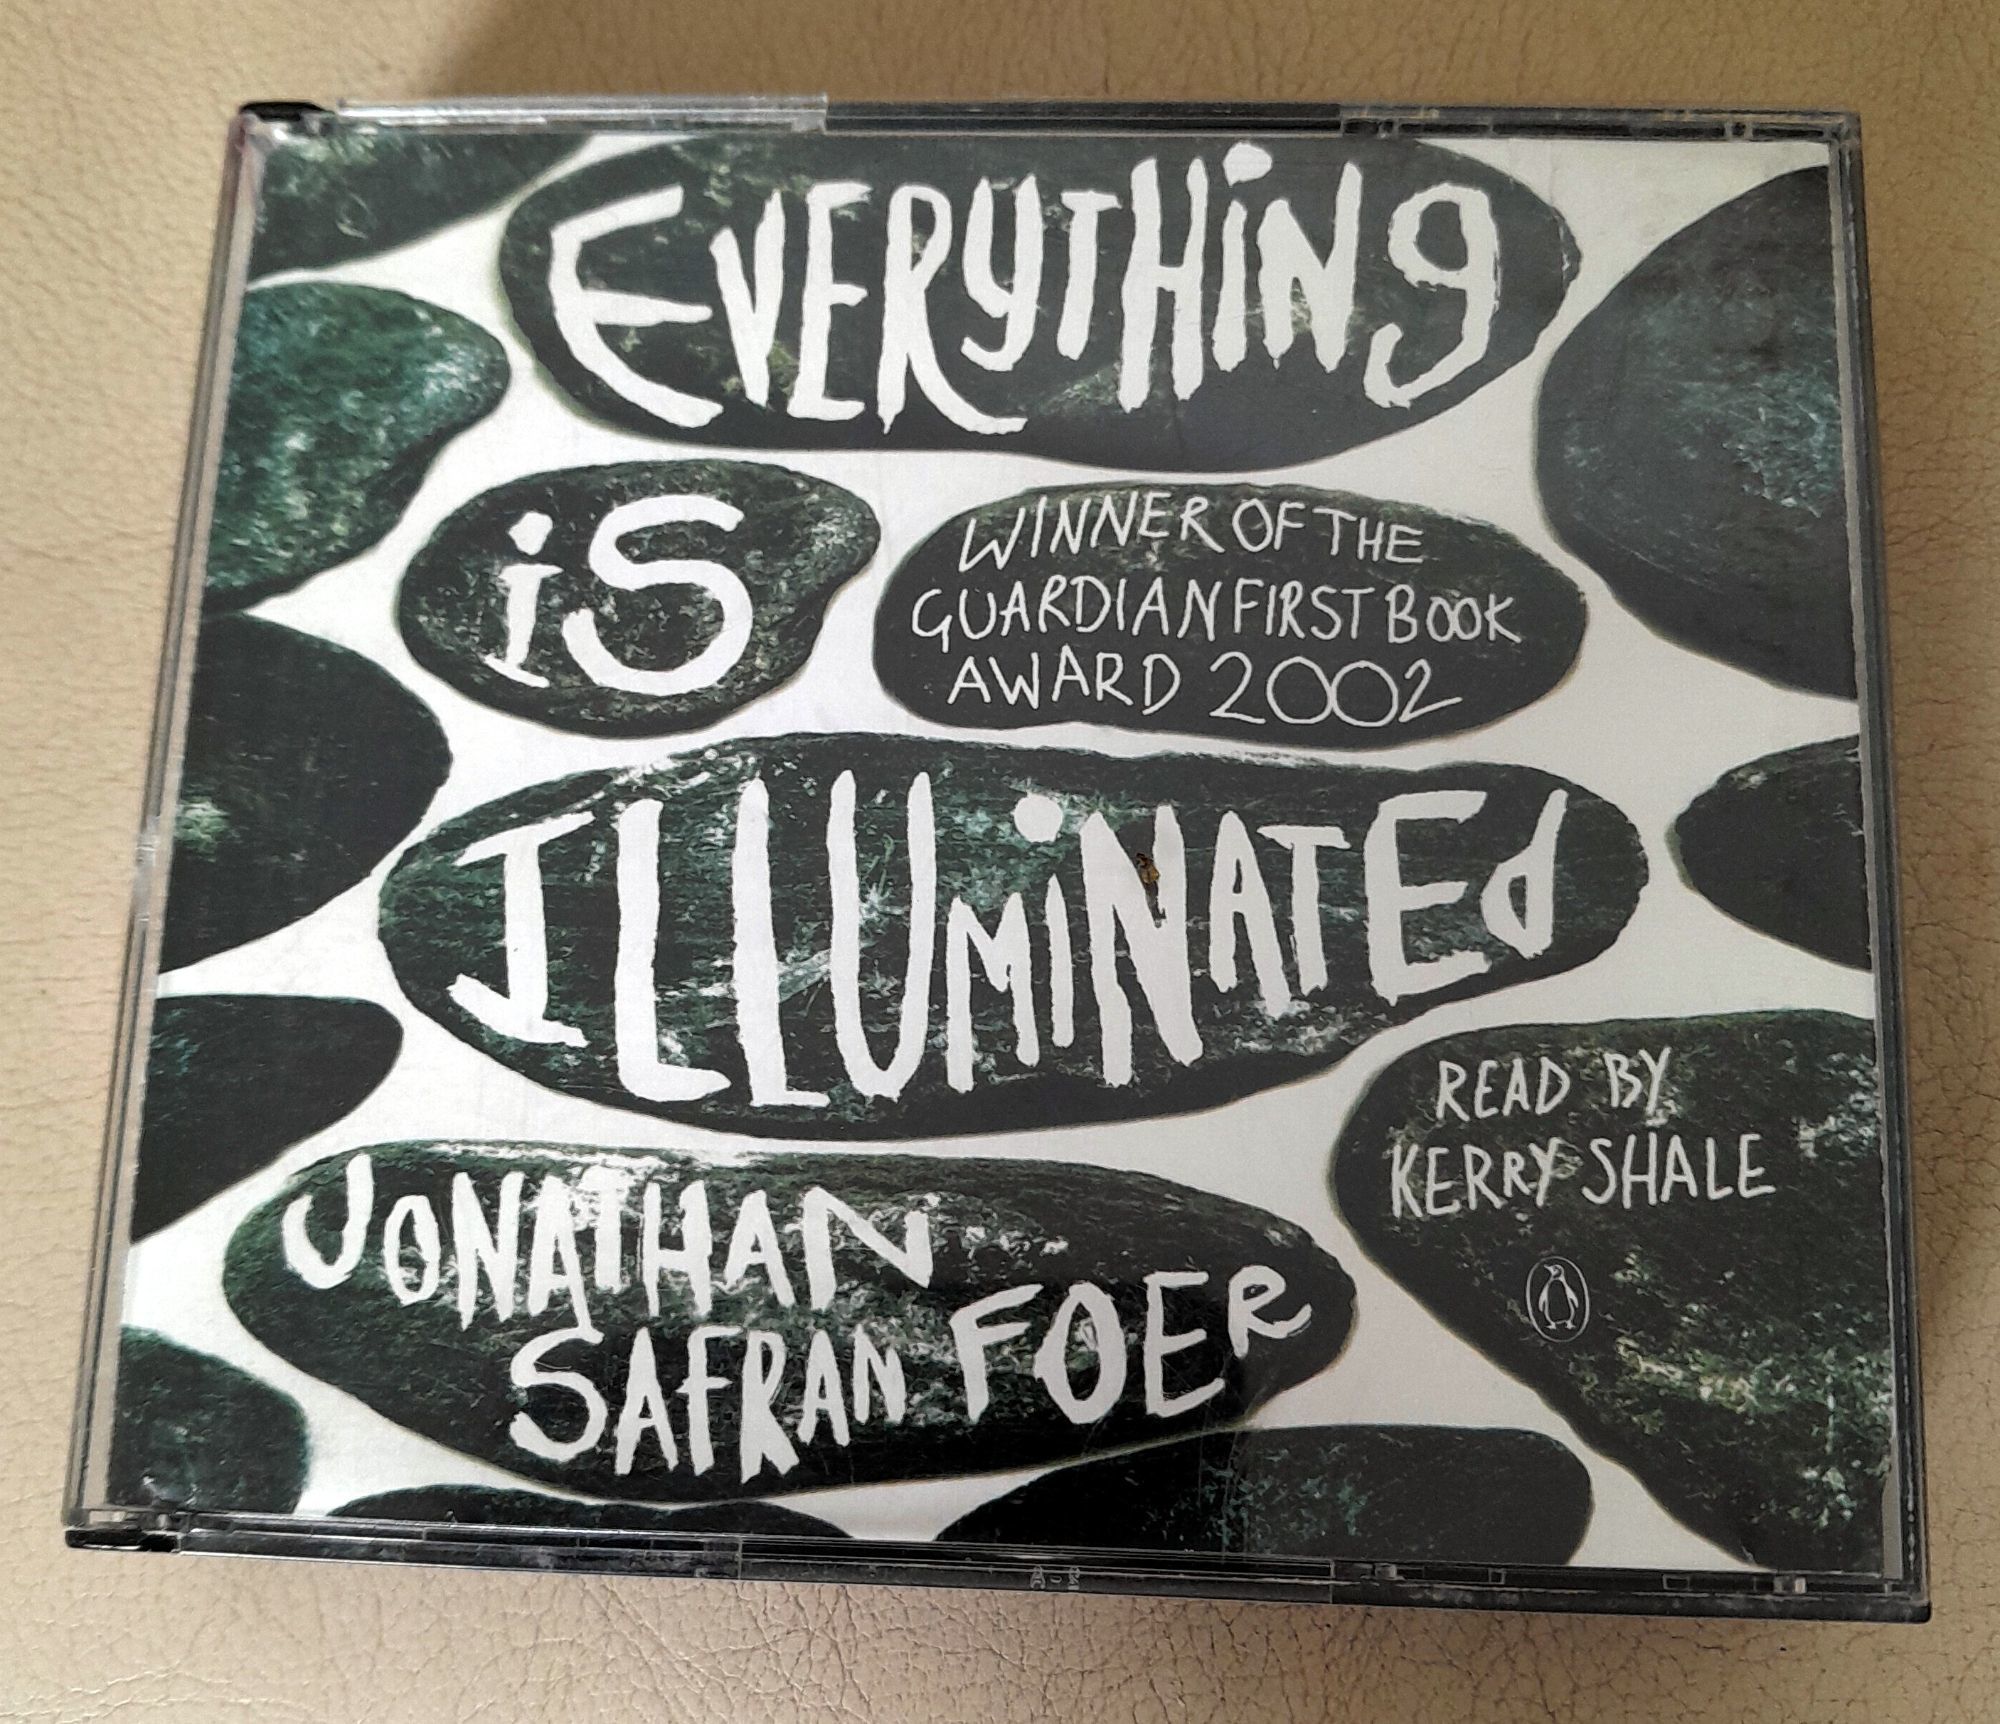 EVERYTHiNg
iS
WINNER OF THE
GUARDIAN FIRST BOOK
AWARD 2002
ILLUMiNATEd
READ BY
KERRY SHALE
JONATHAN
SAFRAN FOER